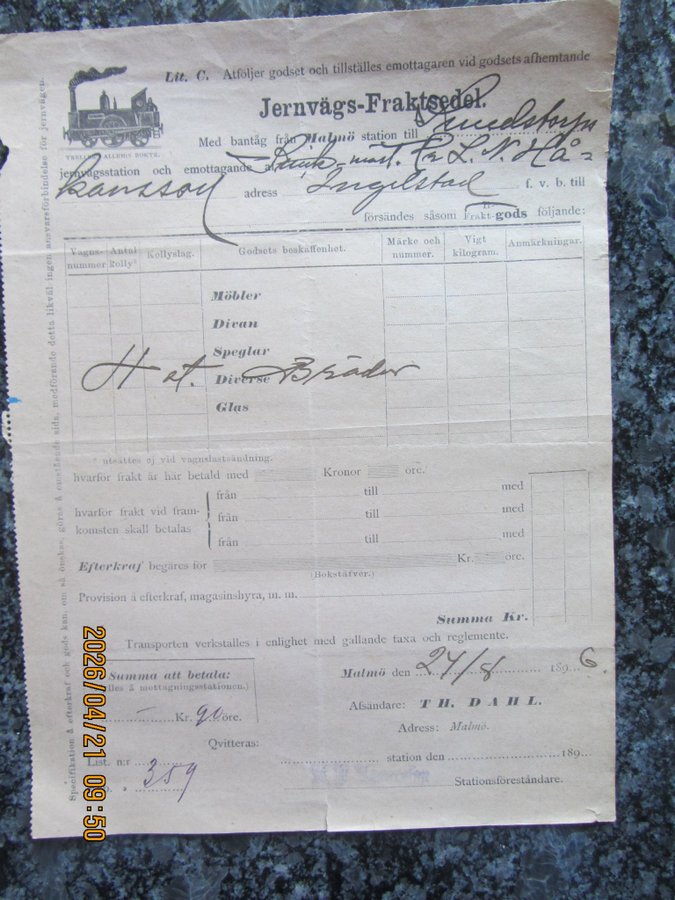 Lit. C. Åtföljer godset och tillställes emottagaren vid godsets afhemtande
Jernvägs-Fraktsedel.
Med bantåg från Malmö station till
jernvägsstation och emottagande af L. N. Hå-
kansson adress Ingelstad f. v. b. till
försändes såsom Frakt-gods följande:
Vagns-nummer Antal Kolly* Kollyslag. Godsets beskaffenhet. Märke och nummer. Vigt kilogram. Anmärkningar.
Möbler
Divan
Speglar
4 st. Diverse Bräder
Glas
* utsättes ej vid vagnslastsändning.
hvarför frakt är här betald med Kronor öre.
hvarför frakt vid fram-komsten skall betalas
från till med
från till med
från till med
Efterkraf begäres för Kr. öre.
(Bokstäfver.)
Provision å efterkraf, magasinshyra, m. m.
Summa Kr.
Transporten verkställes i enlighet med gällande taxa och reglemente.
Summa att betala:
(ifylles å mottagningsstationen.)
— Kr. 90 öre.
Malmö den 24/8 1896.
Afsändare: TH. DAHL.
Adress: Malmö.
Qvitteras:
List. n:r
station den 189
359
Stationsföreståndare.
Specifikation å efterkraf och gods kan, om så önskas, göras å omstående sida, medförande detta likväl ingen ansvarsförbindelse för jernvägen.
2026/04/21 09:50